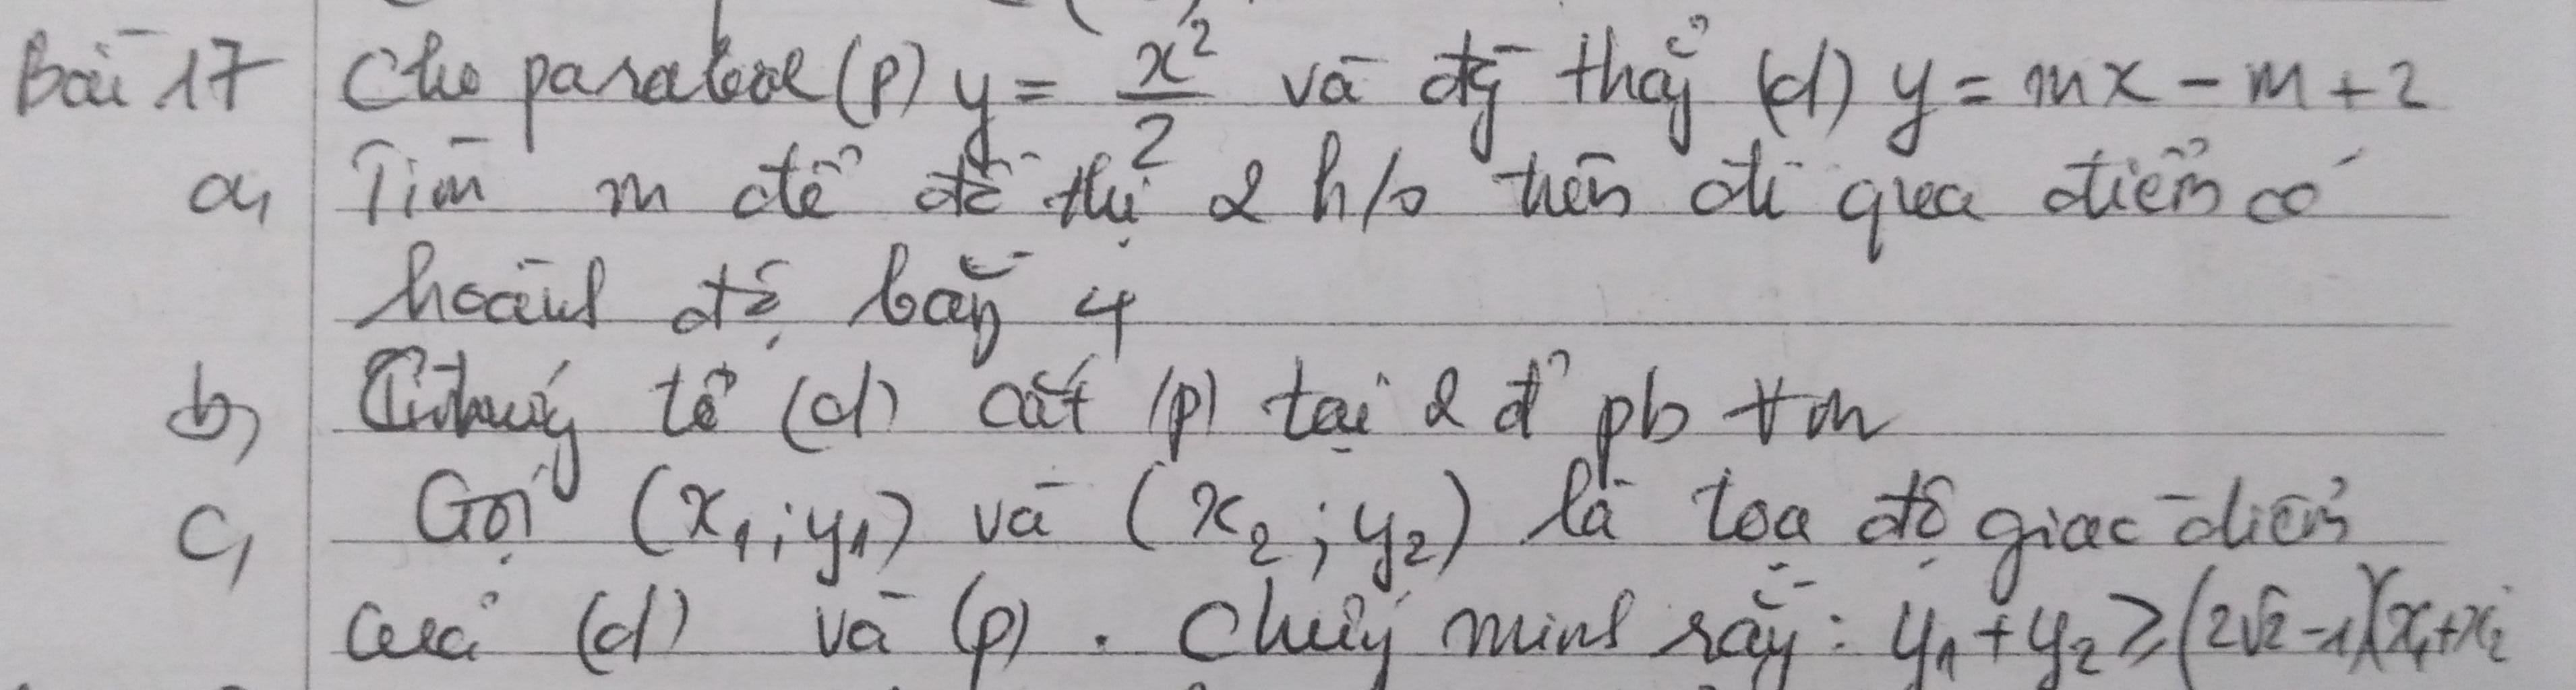 Bài 17 Cho parabol (P) y = x²/2 và đg thẳg (d) y = mx - m + 2
a, Tìm m để đồ thị 2 h/s trên đi qua điểm có
hoành độ bằg 4
b, Chứng tỏ (d) cắt (P) tại 2 đ' pb ∀m
c, Gọi (x₁; y₁) và (x₂; y₂) là toạ độ giao điểm
của (d) và (P). Chứng minh rằg: y₁ + y₂ ≥ (2√2 - 1)(x₁ + x₂